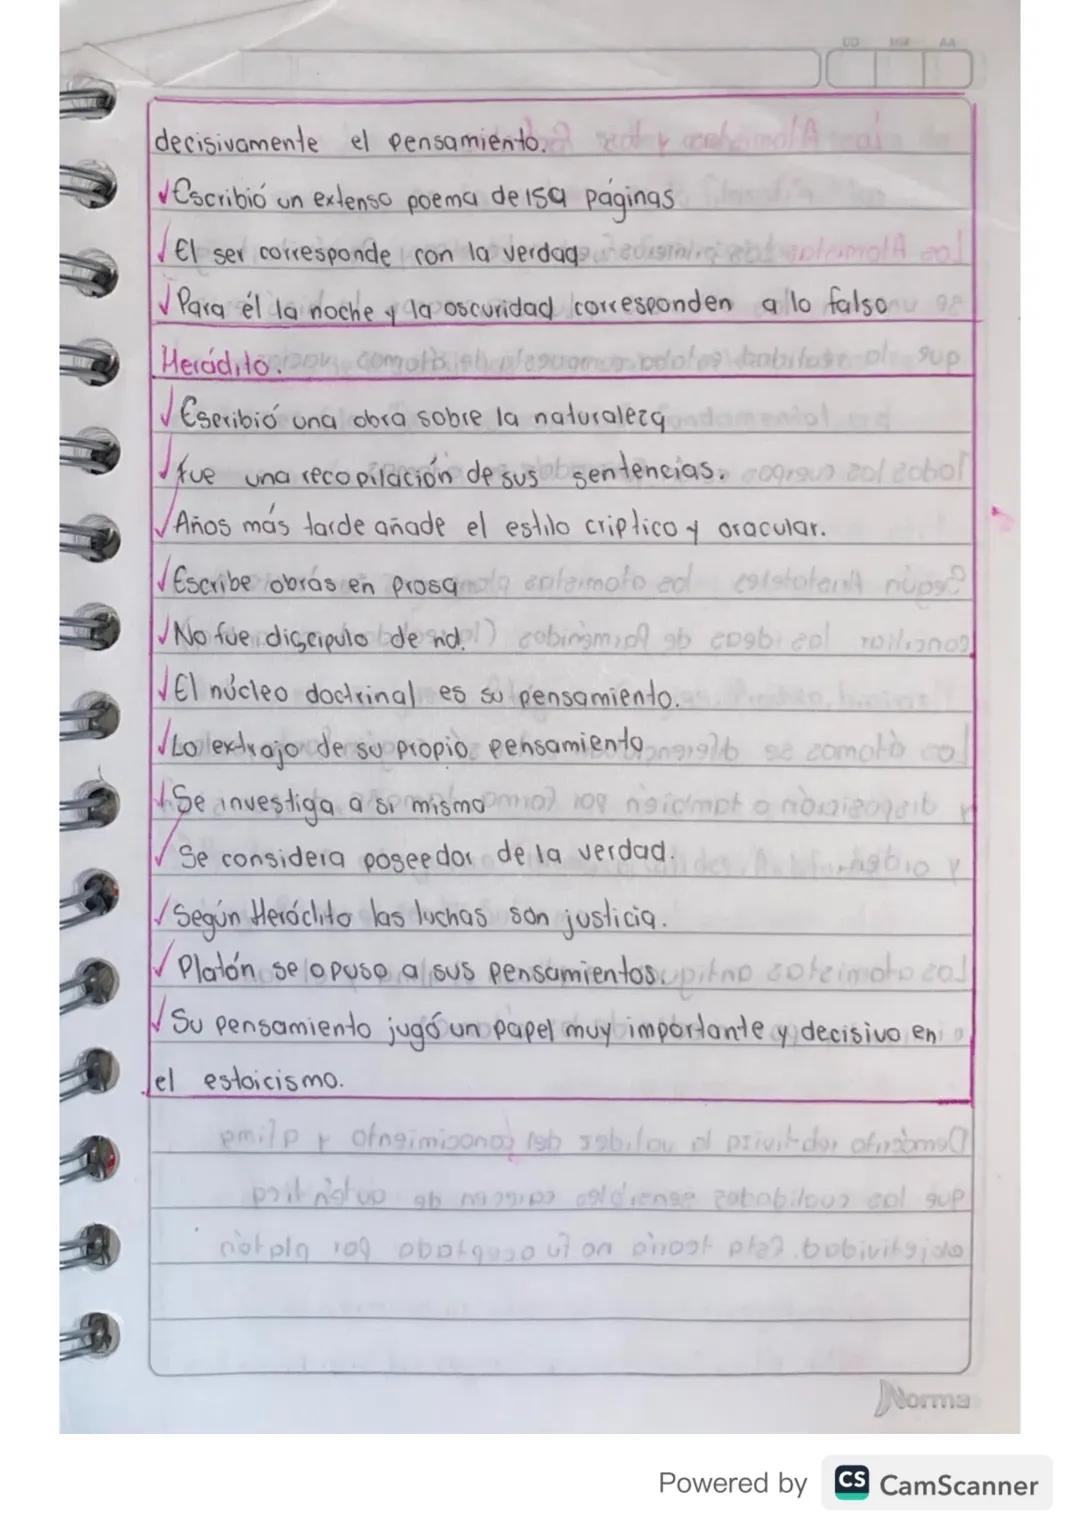 DD MM AA
decisivamente el pensamiento.
✓Escribió un extenso poema de 159 páginas
✓El ser corresponde con la verdad
✓Para él la noche y la oscuridad corresponden a lo falso
Heráclito.
✓Escribió una obra sobre la naturaleza
✓fue una recopilación de sus sentencias.
✓Años más tarde añade el estilo criptico y oracular.
✓Escribe obras en prosa
✓No fue discipulo de nd.
✓El núcleo doctrinal es su pensamiento.
✓Lo extrajo de su propio pensamiento
✓Se investiga a si mismo
✓Se considera poseedor de la verdad.
✓Según Heráclito las luchas son justicia.
✓Platón se opuso a sus pensamientos.
✓Su pensamiento jugó un papel muy importante y decisivo en
el estoicismo.
Norma
Powered by CS CamScanner